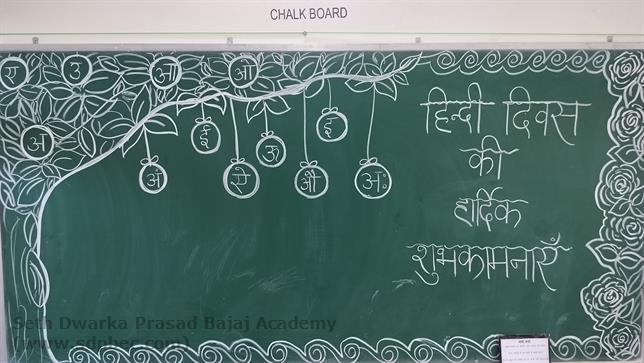 CHALK BOARD
ए उ आ ओ
अ
अं ई ऐ ऊ औ इ अः
हिन्दी दिवस
की
हार्दिक
शुभकामनाएँ
Seth Dwarka Prasad Bajaj Academy
(www.sdpbec.com)